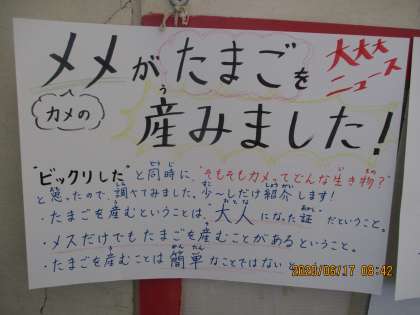 メメが たまごを
大大大
ニュース
カメの
う
産みました!
"ビックリした"と同時に、"そもそもカメってどんな生き物?"
と思ったので、調べてみました。少〜しだけ紹介します!
・たまごを産むということは、"大人"になった証だということ。
・メスだけでもたまごを産むことがあるということ。
・たまごを産むことは簡単なことではない
08:42